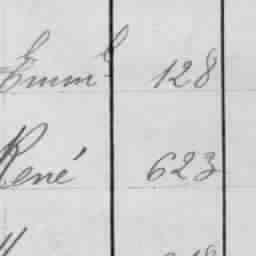 Emm^l 128
René 623